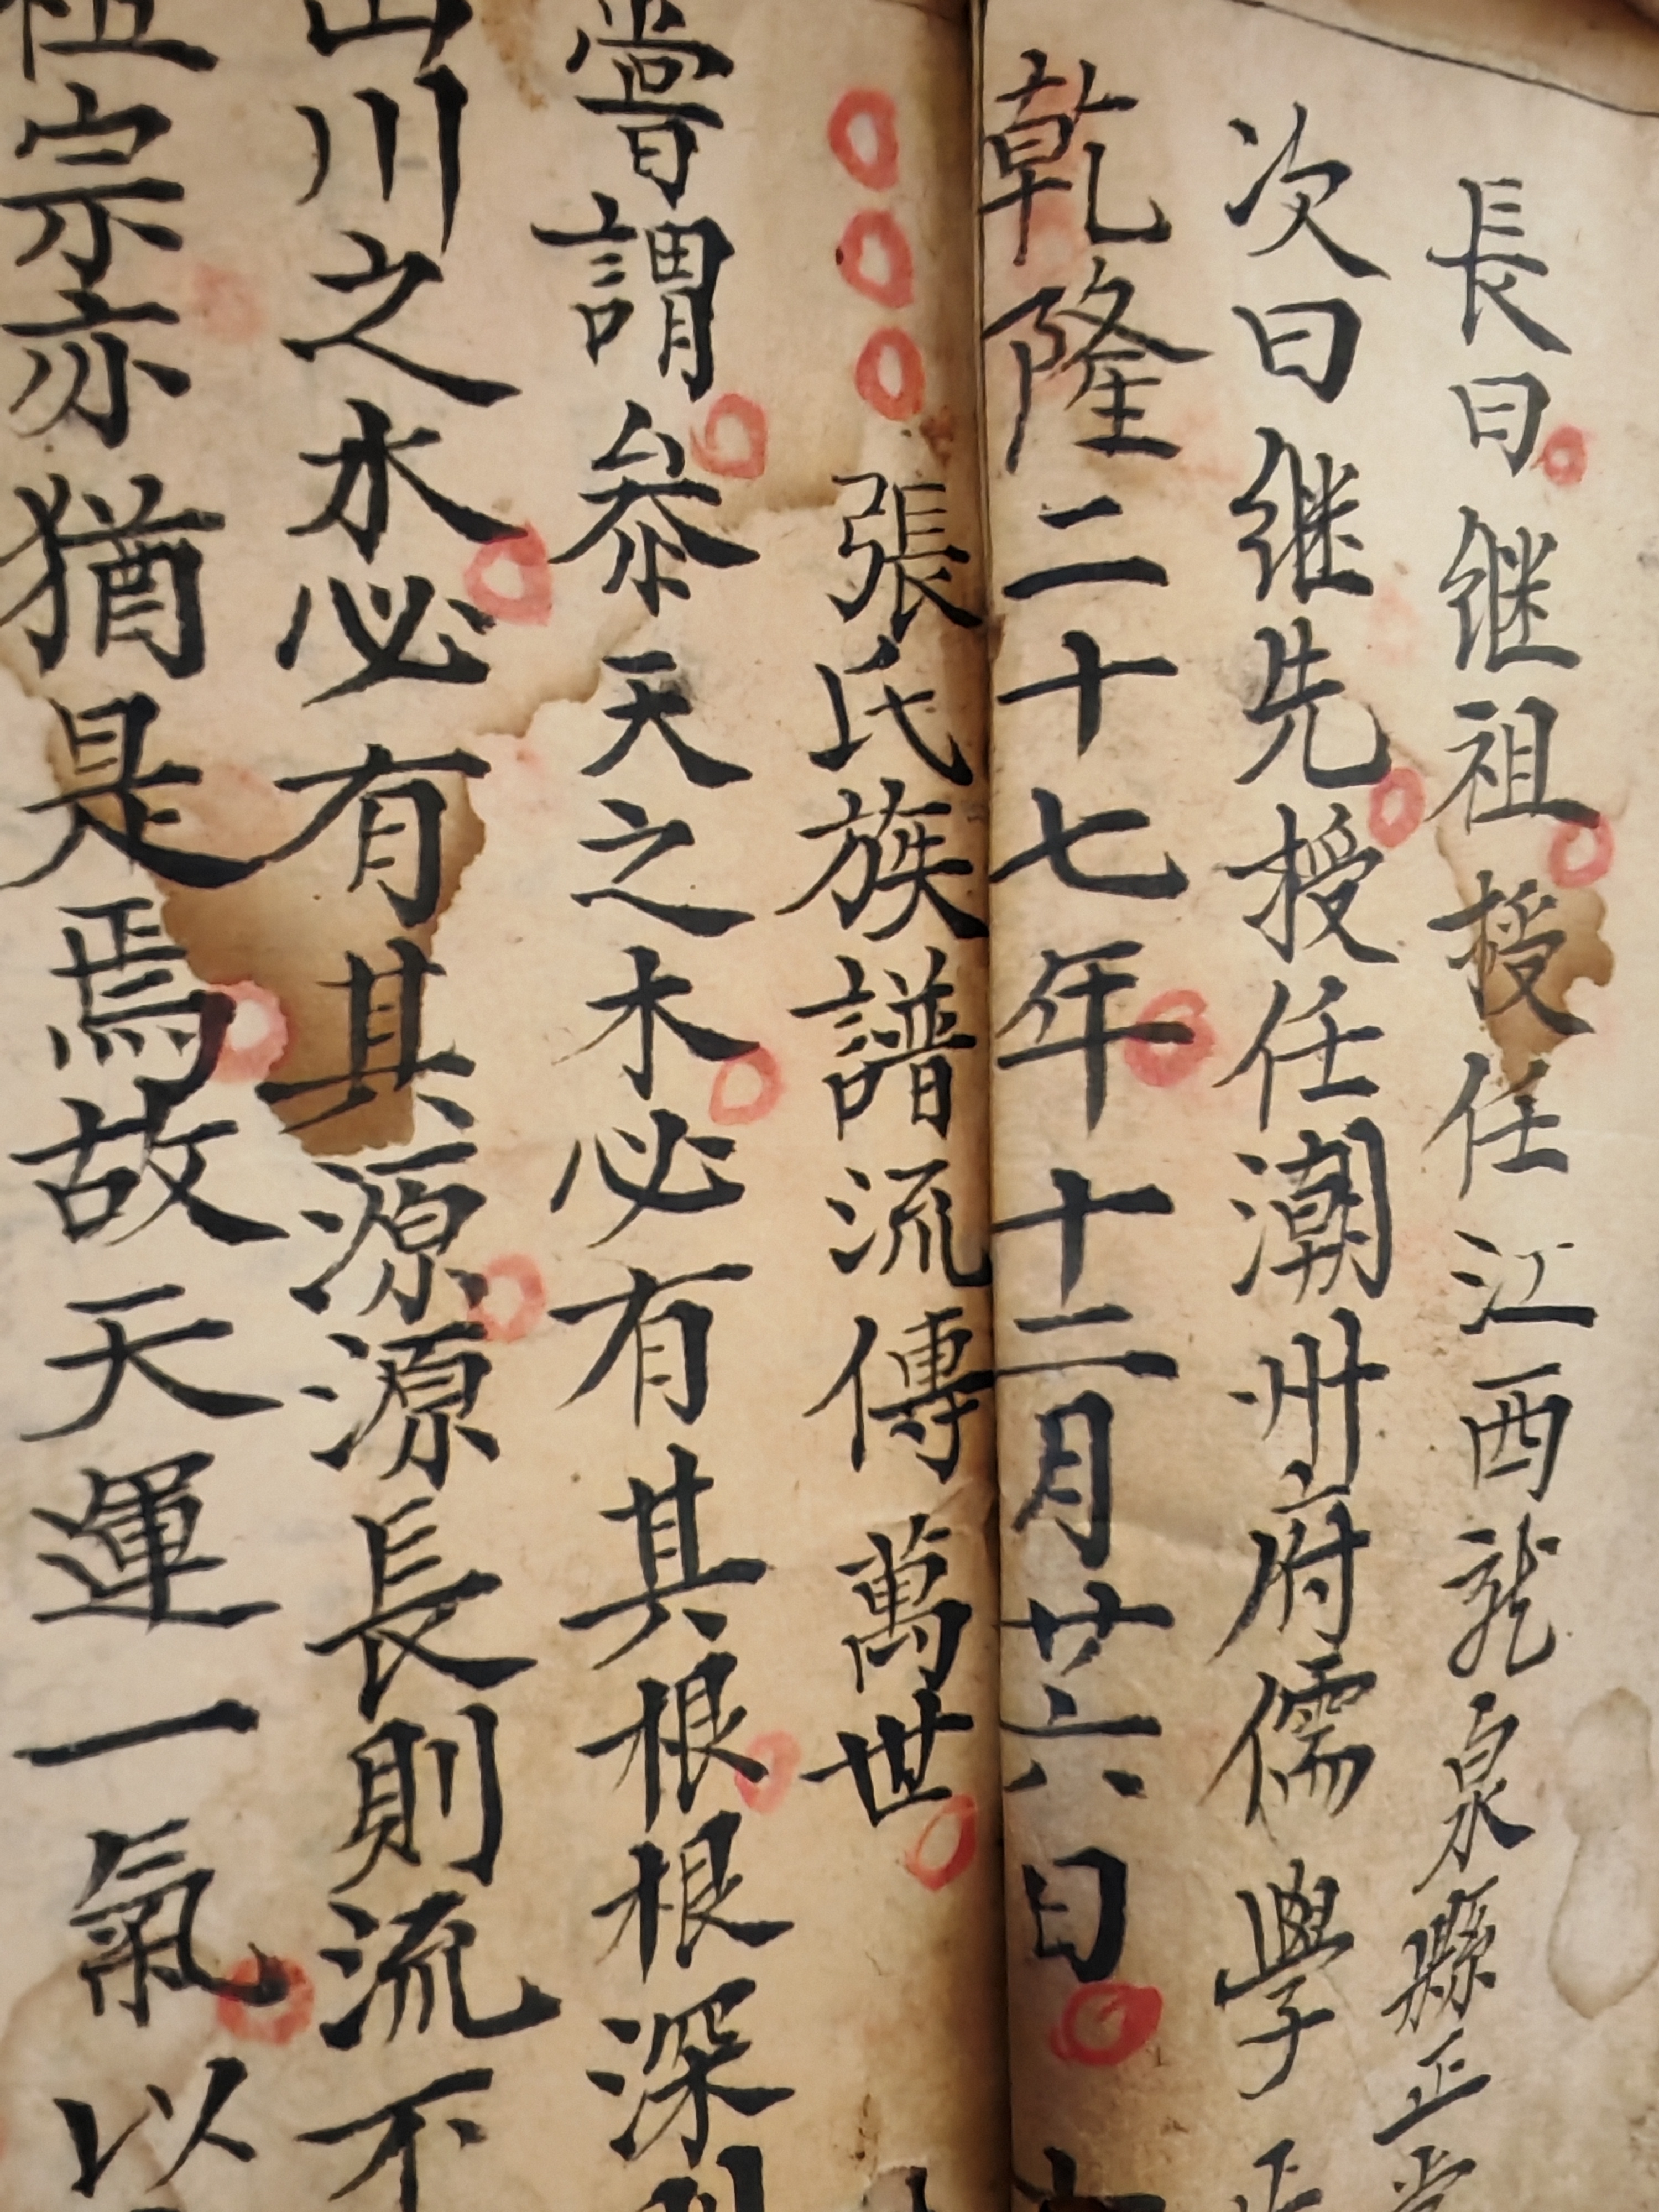 長曰继祖授任江西龙泉縣正堂
次曰继先授任潮州府儒學正
乾隆二十七年十二月廿六日
張氏族譜流傳萬世
嘗謂參天之木必有其根根深則
山川之水必有其源源長則流不
祖宗亦猶是焉故天運一氣以